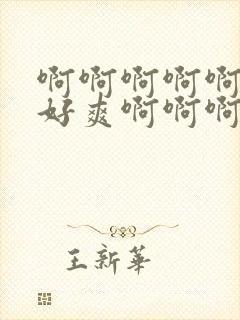 啊啊啊啊啊
好爽啊啊啊
王新华